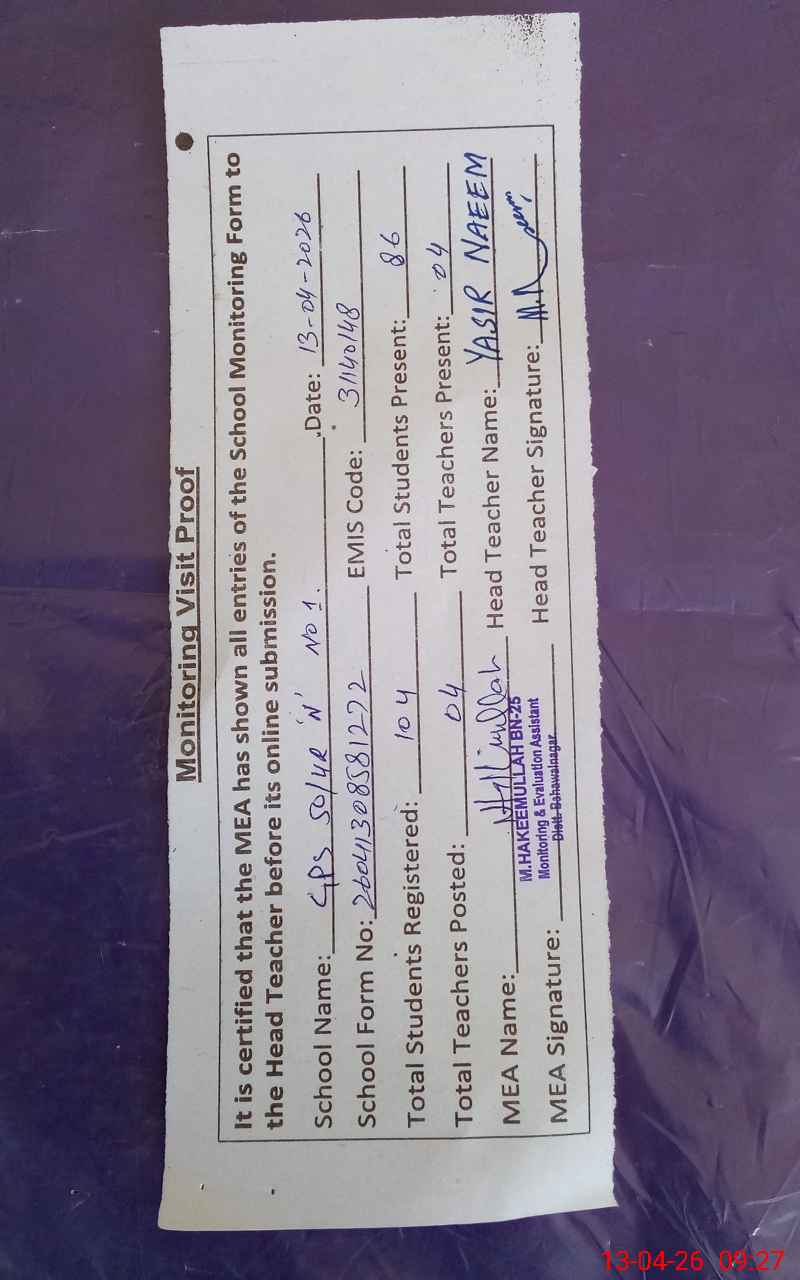 Monitoring Visit Proof
It is certified that the MEA has shown all entries of the School Monitoring Form to
the Head Teacher before its online submission.
School Name: GPS 50/4R 'N' NO 1. Date: 13-04-2026
School Form No: 2604130858 1272 EMIS Code: 31140148
Total Students Registered: 104 Total Students Present: 86
Total Teachers Posted: 04 Total Teachers Present: 04
MEA Name: Head Teacher Name: YASIR NAEEM
M.HAKEEMULLAH BN-25
Monitoring & Evaluation Assistant
Distt. Bahawalnagar
MEA Signature: Head Teacher Signature:
13-04-26 09:27